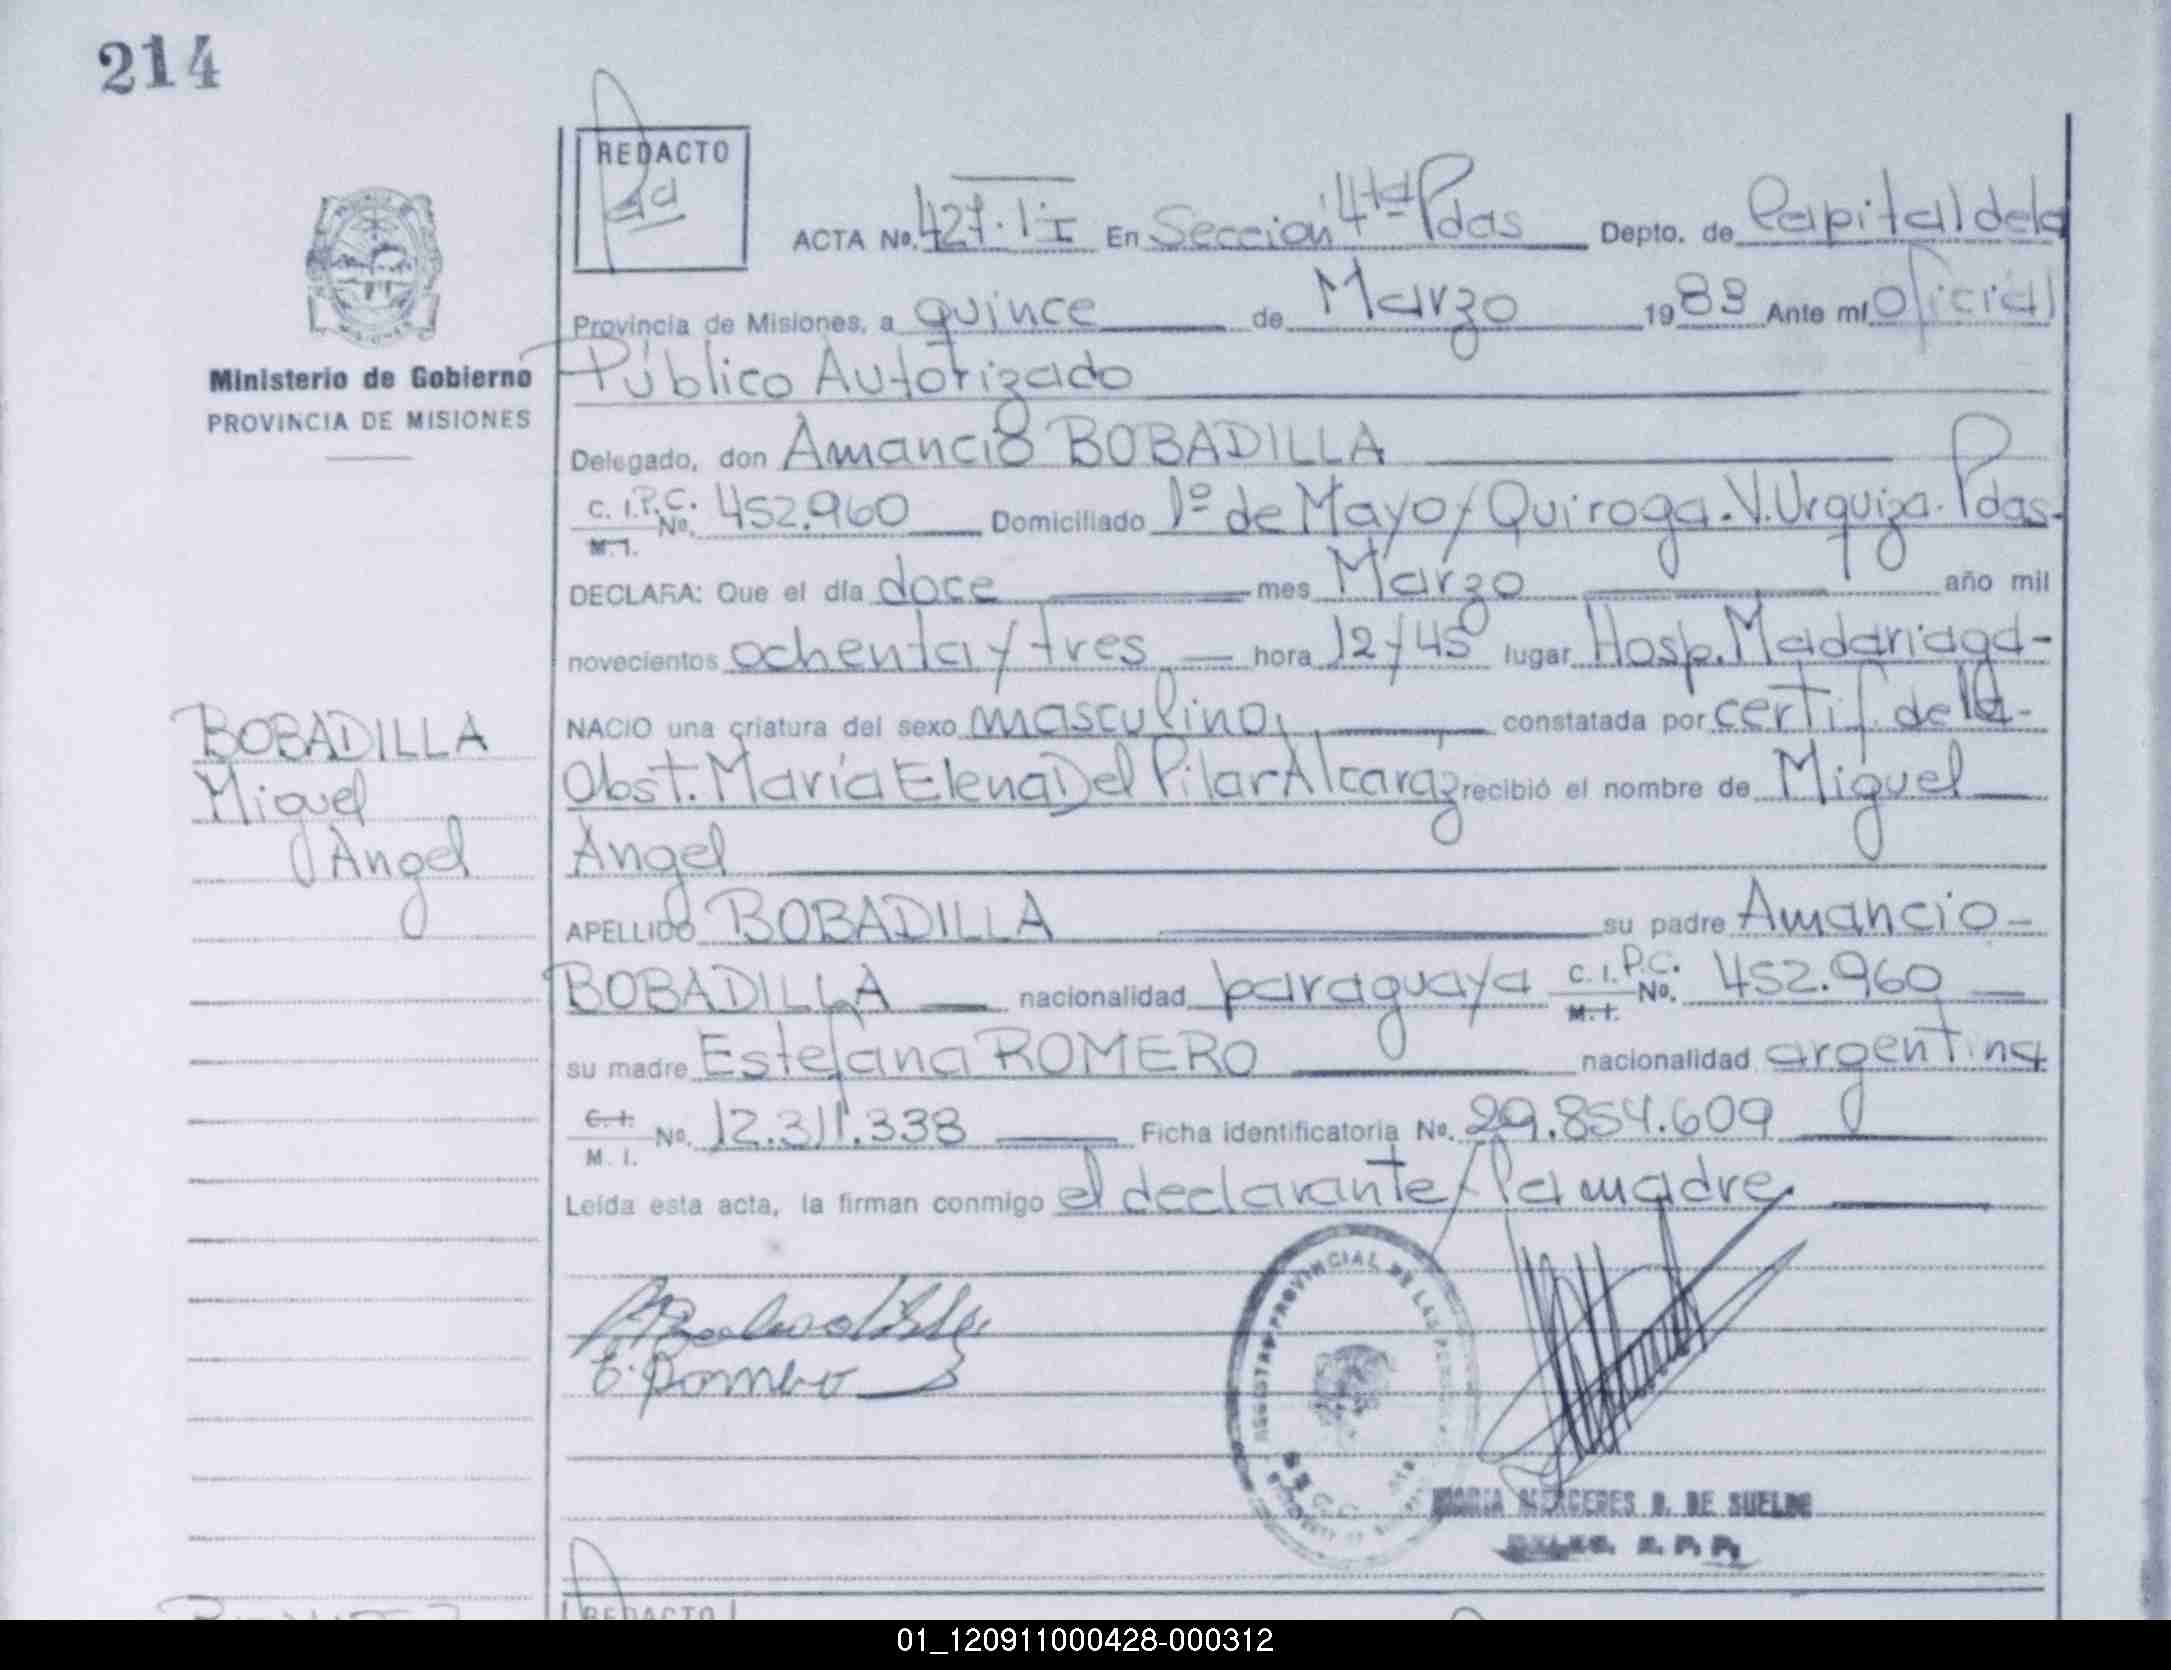 214
REDACTO
ACTA No. 427. 1ºI En Sección 4ta Pdas Depto. de Capital de la
Provincia de Misiones, a quince de Marzo 1983 Ante mí Oficial
Ministerio de Gobierno
PROVINCIA DE MISIONES
Público Autorizado
Delegado, don Amancio BOBADILLA
C. I.P.C. No. 452.960 Domiciliado 1º de Mayo y Quiroga. V. Urquiza. Pdas.
M. I.
DECLARA: Que el día doce mes Marzo año mil
novecientos ochenta y tres hora 12 y 45 lugar Hosp. Madariaga-
NACIO una criatura del sexo masculino, constatada por certif. de la-
Obst. María Elena Del Pilar Alcaraz recibió el nombre de Miguel
Angel
APELLIDO BOBADILLA su padre Amancio-
BOBADILLA nacionalidad paraguaya C. I.P.C. No. 452.960
M. I.
su madre Estefana ROMERO nacionalidad argentina
C. I. No. 12.311.338 Ficha identificatoria No. 29.854.609
M. I.
Leída esta acta, la firman conmigo el declarante y la madre.
BOBADILLA
Miguel
Angel
ABobadilla
E. Romero
PROVINCIAL DE LAS
MARIA MERCEDES D. DE SUELDO
REDACTO
01_120911000428-000312